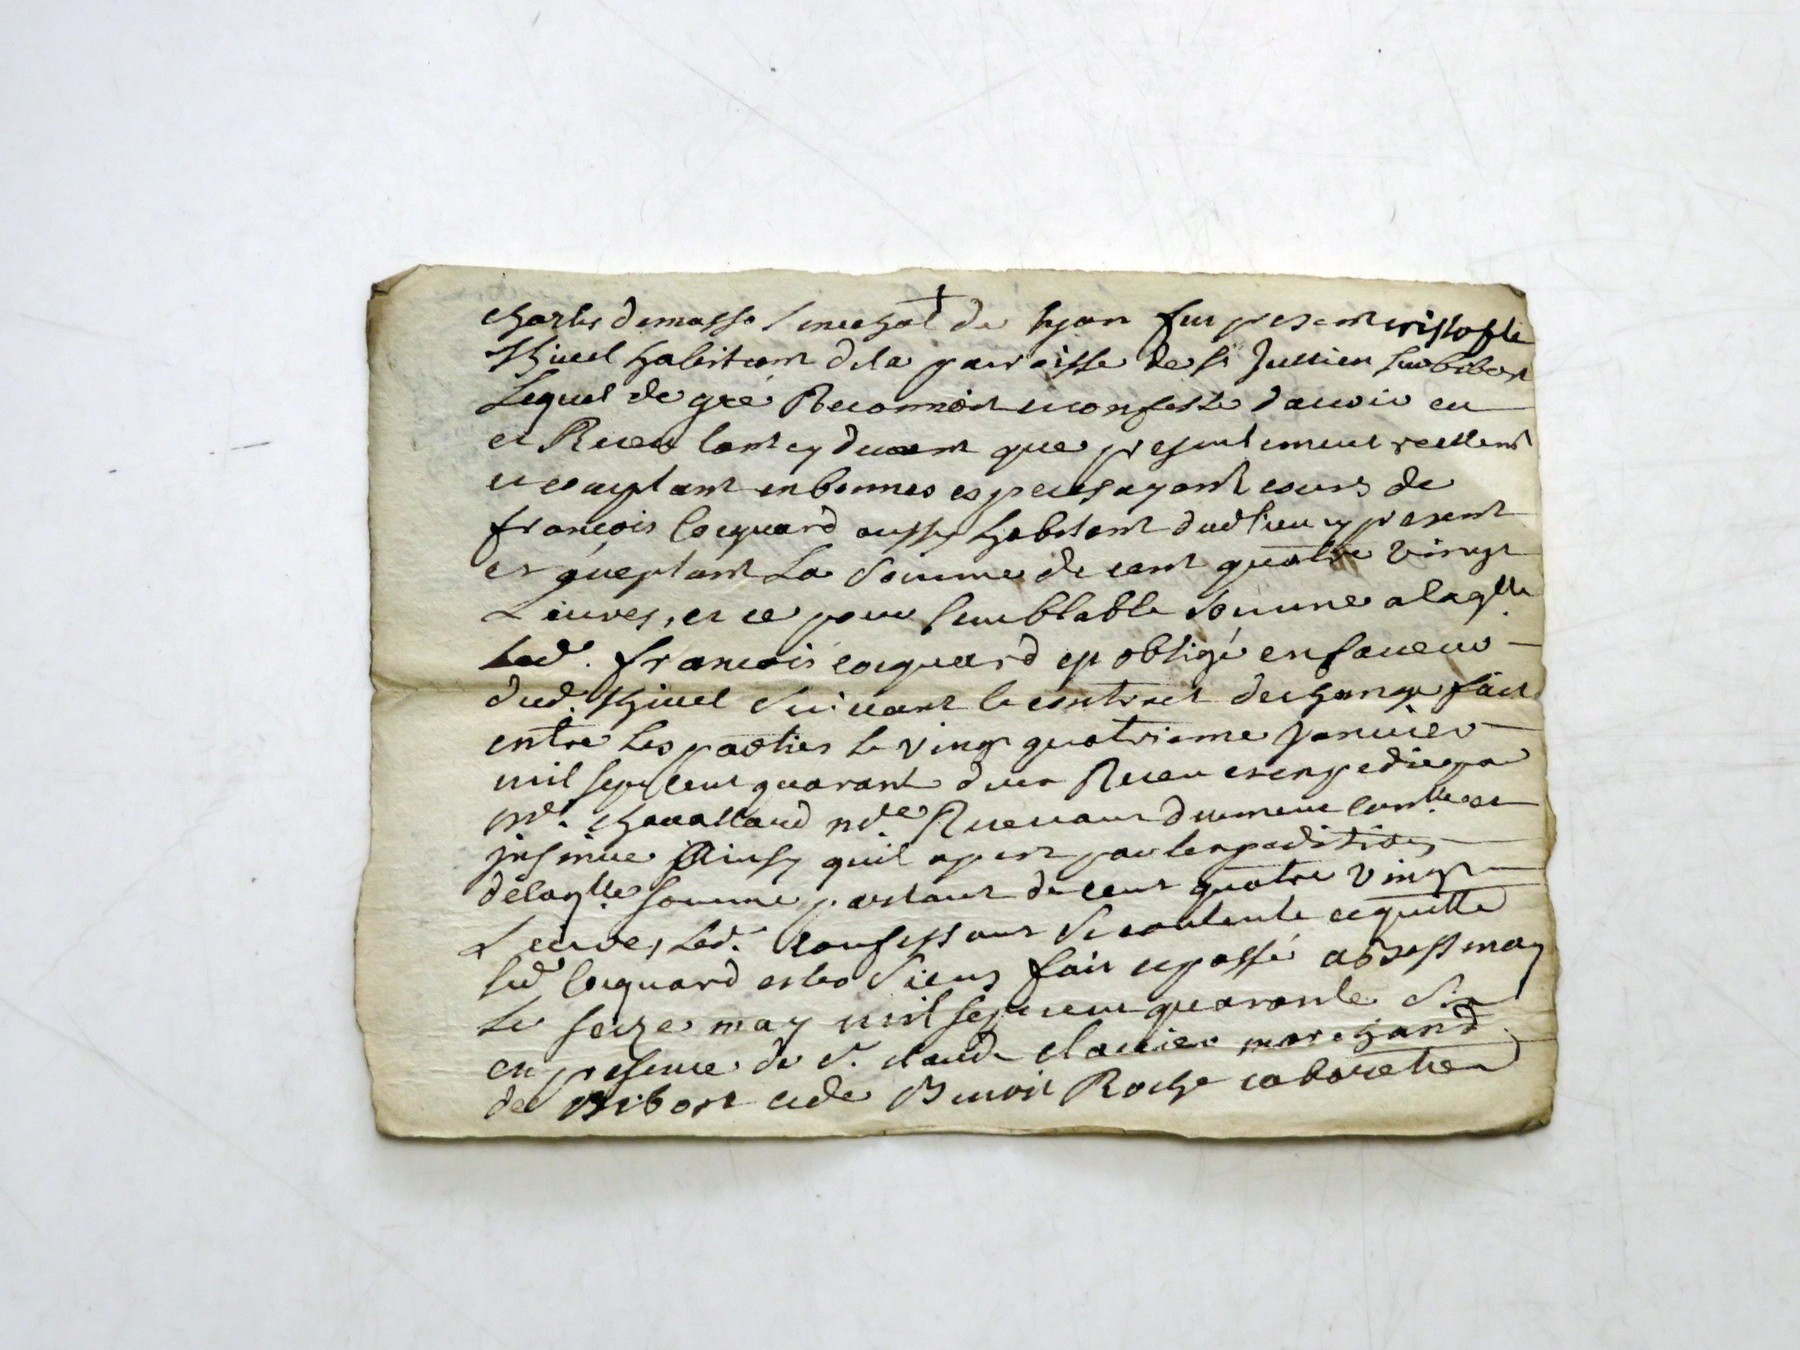 charles de masso senechal de lyon fut present cristofle
Thivel habitant de la parroisse de st Jullien sur bibost
Lequel de gré Reconnoit et confesse d'avoir eu
et Receu tant cy devant que presentement reellemt
et comptant en bonnes especes ayant cours de
françois Coquard aussy habitant dud lieu cy present
et acceptant La Somme de cent quatre vingt
Livres, et ce pour semblable Somme a laqlle
Led. françois coquard est obligé en faveur
dud. Thivel Suivant le contract deschange fait
entre Les parties le vingt quatrieme janvier
mil sept cent quarant deux Receu et expedie par
me. chavassard nre Recevant duement conllé et
insinué Ainsy quil apert par lexpedition
de laqlle somme partant de cent quatre vingt
Livres, Led. confessant se contente et quitte
led Coquard et les Siens fait et passé a bessenay
Le seize may mil sept cent quarante six
en presence de Sr. claude clavier marchand
de Bibost et de Benoit Roche cabaretier